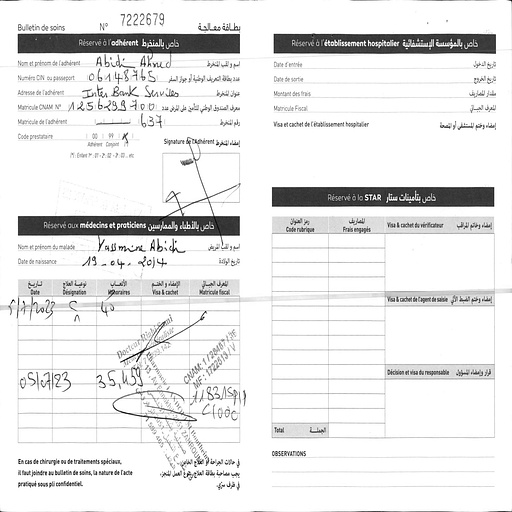 Bulletin de soins N° 7222679 بطاقة معالجة
Réservé à l'adhérent خاص بالمنخرط
Nom et prénom de l'adhérent Abidi Ahmed اسم و لقب المنخرط
Numéro CIN ou passeport 06148765 عدد بطاقة التعريف الوطنية أو جواز السفر
Adresse de l'adhérent Inter Bank Services عنوان المنخرط
Matricule CNAM N° 125629970 0
Matricule de l'adhérent 637 رقم المنخرط
Code prestataire 00 99
Adhérent Conjoint (*)
Signature de l'Adhérent إمضاء المنخرط
(*) : Enfant 1er : 01 - 2e : 02 - 3e : 03 ... etc
Réservé aux médecins et praticiens خاص بالأطباء والممارسين
Nom et prénom du malade Yassmine Abidi اسم و لقب المريض
Date de naissance 19-04-2014 تاريخ الولادة
تاريخ نوعية العلاج الأتعاب الإمضاء و الختم المعرف الجبائي
Date Désignation Honoraires Visa & cachet Matricule fiscal
5/7/2023 C 40
05/07/23 35,459
En cas de chirurgie ou de traitements spéciaux,
il faut joindre au bulletin de soin, la nature de l'acte
pratiqué sous pli confidentiel.
في حالات الجراحة أو العلاج الخاص
يجب مصاحبة بطاقة العلاج بنوع العمل المنجز،
في ظرف سري.
Réservé à l'établissement hospitalier خاص بالمؤسسة الإستشفائية
Date d'entrée تاريخ الدخول
Date de sortie تاريخ الخروج
Montant des frais مقدار المصاريف
Matricule Fiscal المعرف الجبائي
Visa et cachet de l'établissement hospitalier إمضاء وختم المستشفى أو المصحة
Réservé à la STAR خاص بتأمينات ستار
رمز العنوان المصاريف
Code rubrique Frais engagés
Visa & cachet du vérificateur إمضاء وخاتم المراقب
Visa & cachet de l'agent de saisie إمضاء وختم الضبط الآلي
Décision et visa du responsable قرار وإمضاء المسؤول
Total الجملة
OBSERVATIONS